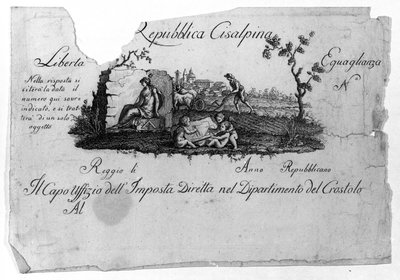 Repubblica Cisalpina
Liberta
Eguaglianza
Nella risposta si
citerà la data il
numero qui sovra
indicato, e si trat-
terà di un solo
oggetto
N
Reggio li Anno Repubblicano
Il Capo Uffizio dell' Imposta Diretta nel Dipartimento del Crostolo
Al